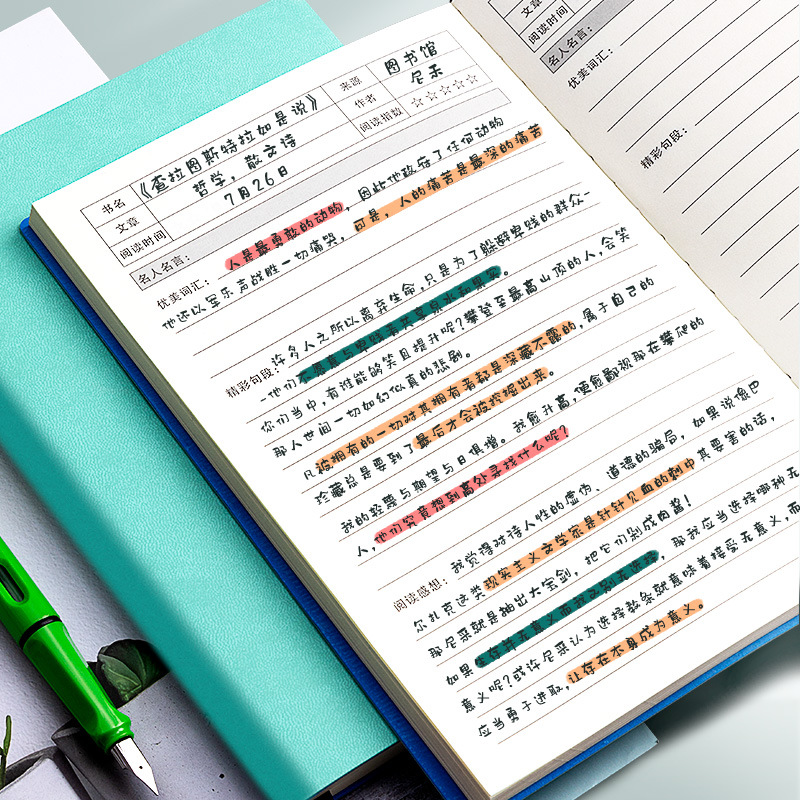 书名 《查拉图斯特拉如是说》 来源 图书馆
文章 哲学，散文诗 作者 尼采
阅读时间 7月26日 阅读指数 ☆☆☆☆☆
名人名言：
优美词汇： 人是最勇敢的动物，因此他政夺了任何动物
他还以军乐声战胜一切痛哭，可是，人的痛苦是最深的痛苦
精彩句段： 许多人之所以离弃生命，只是为了躲避卑贱的群众-
-他们不愿意与卑贱者共享泉水和果实。
你们当中，有谁能够笑且提升呢？攀登至最高山顶的人，会笑
那人世间一切如幻似真的悲剧。
凡被拥有的一切对其拥有者都是深藏不露的，属于自己的
珍藏总是要到了最后才会被挖掘出来。
我的轻蔑与期望与日俱增。我愈升高，便愈鄙视那在攀爬的
人，他们究竟想到高处寻找什么呢？
阅读感想： 我觉得对待人性的虚伪、道德的骗局，如果说像巴
尔扎克这类现实主义文学家是针针见血的刺中其要害的话，
那尼采就是抽出大宝剑，把它们剁成肉酱！
如果生存并无意义而我已别无选择，那我应当选择哪种无
意义呢？或许尼采认为选择教条就意味着接受无意义，而
应当勇于进取，让存在本身成为意义。
文章
阅读时间
名人名言：
优美词汇：
精彩句段：